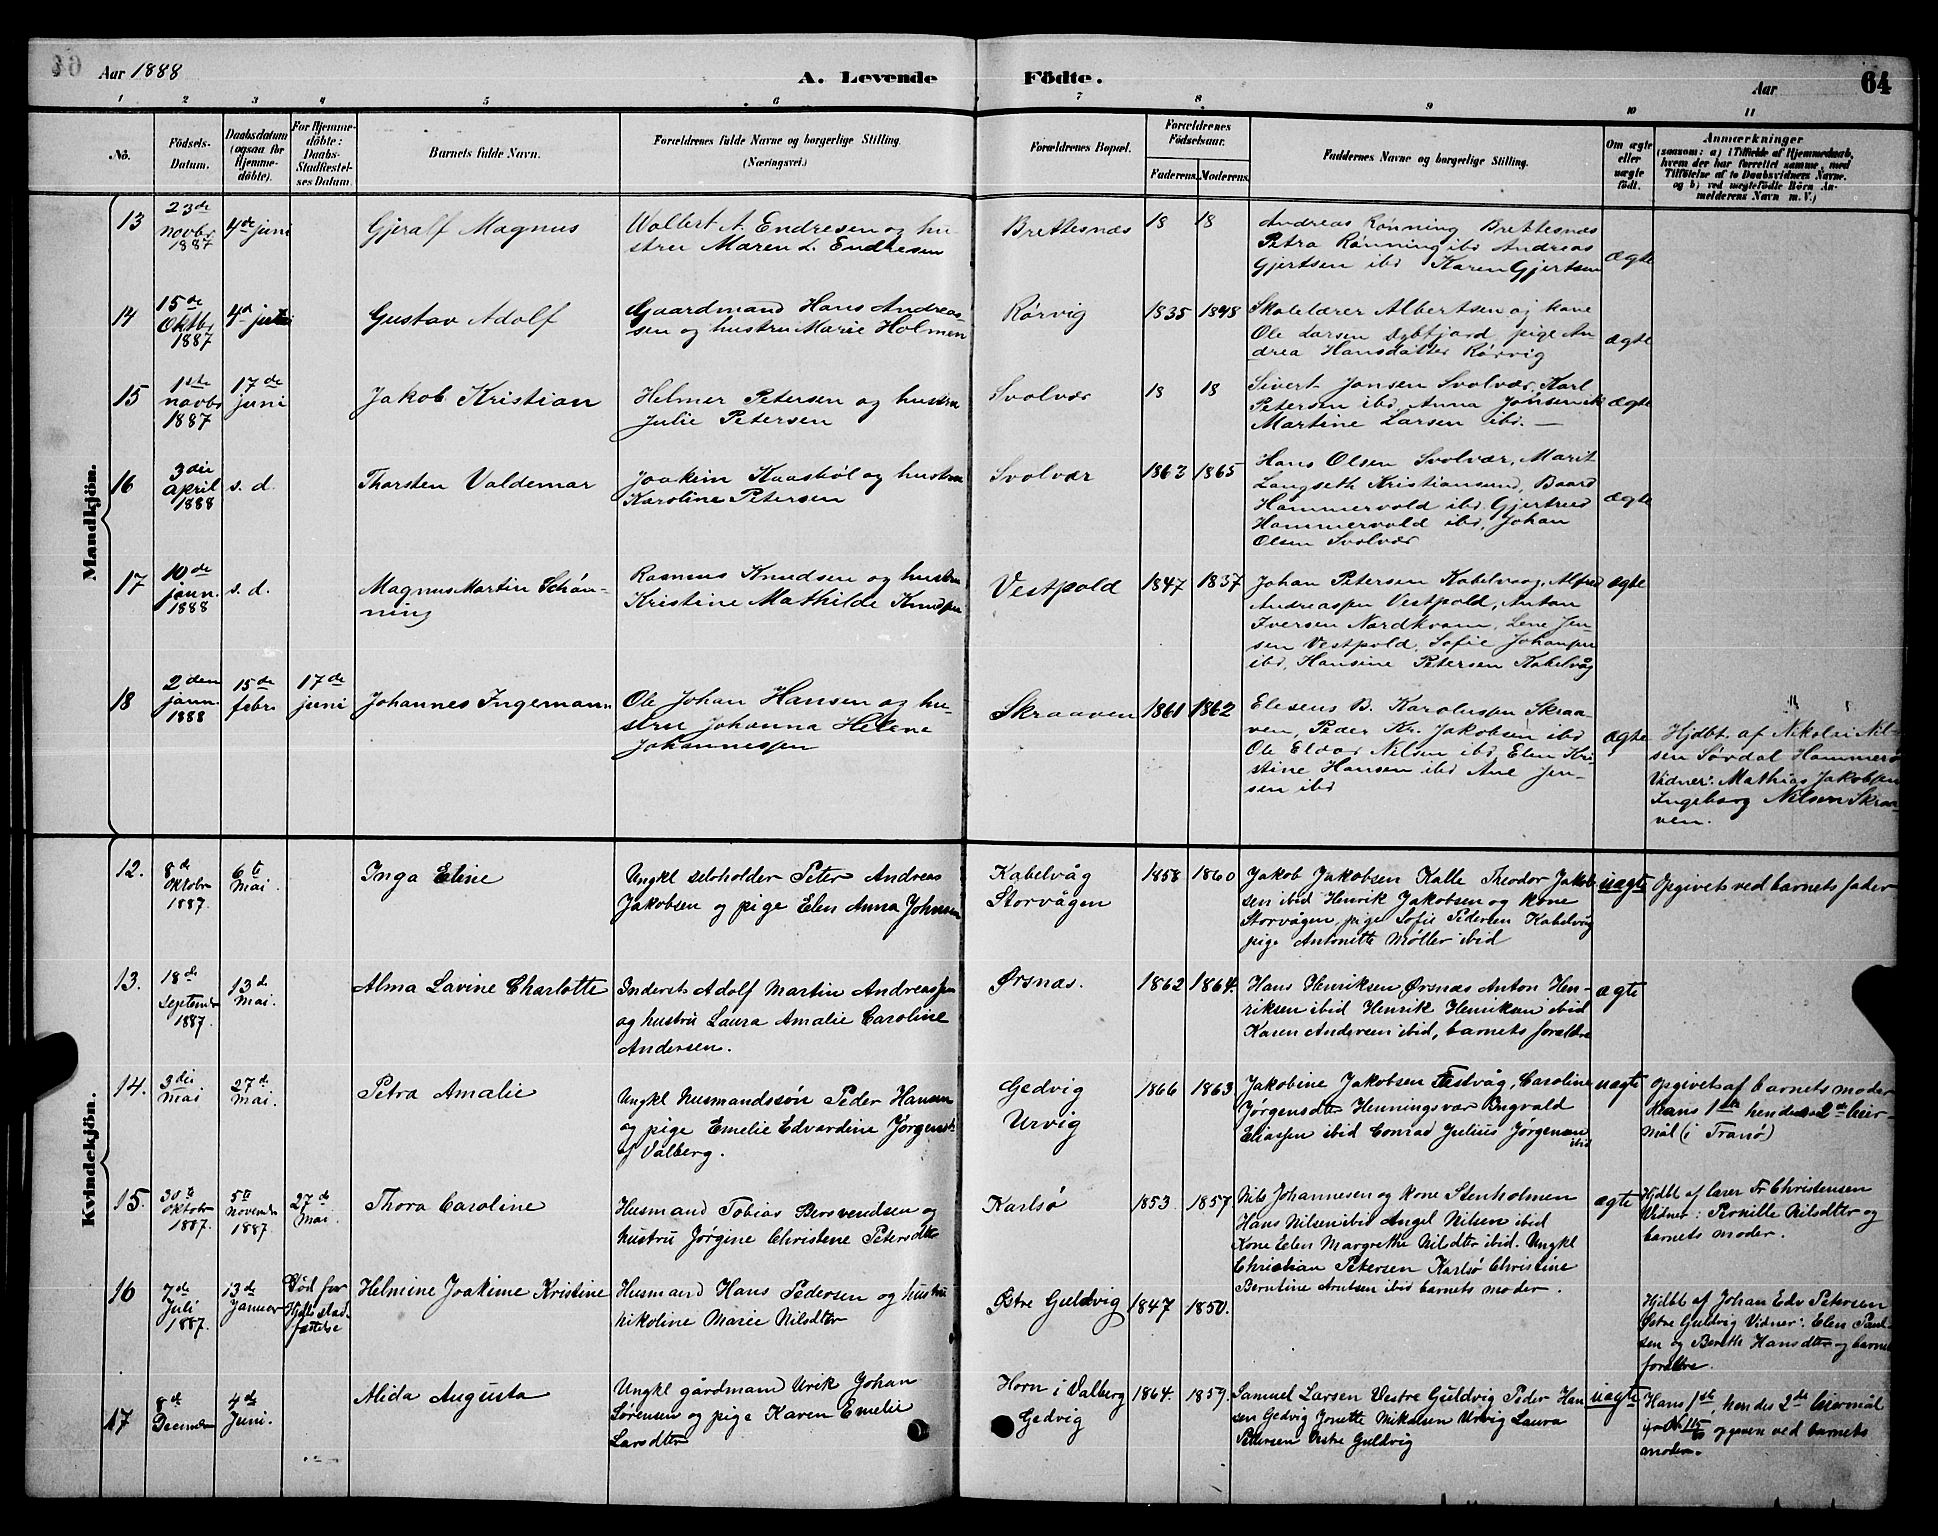 Aar 1888
A. Levende Födte.
Aar
64
1 2 3 4 5 6 7 8 9 10 11
No.
Födsels-Datum.
Daabsdatum (ogsaa for Hjemme-döbte).
For Hjemme-döbte: Daabs-Stadfæstel-ses Datum.
Barnets fulde Navn.
Forældrenes fulde Navne og borgerlige Stilling. (Næringsvei.)
Forældrenes Bopæl.
Forældrenes Födselsaar.
Faderens. Moderens.
Faddernes Navne og borgerlige Stilling.
Om ægte eller uægte födt.
Anmærkninger
(saasom: a) i Tilfælde af Hjemmedaab, hvem der har forrettet samme, med Tilföielse af to Daabsvidners Navne. og b) ved uægtefödte Börn An-melderens Navn m. V.)
Mandkjön.
13
23de novbr 1887
4de juni
Gjeralf Magnus
Wolbert A. Endresen og hu-
stru Maren L. Endresen
Brettesnæs
18 18
Andreas Rønning Brettesnæs
Petra Rønning ibd Andreas
Gjertsen ibd Karen Gjertsen
ægte
14
15de Oktbr 1887
4d juni
Gustav Adolf
Gaardmand Hans Andreas-
sen og hustru Marie Holmen
Rørvig
1835 1848
Skolelærer Albertsen og kone
Ole Larsen Dybfjord, pige An-
drea Hansdatter Rørvig
ægte
15
1ste novbr 1887
17de juni
Jakob Kristian
Helmer Petersen og hustru
Julie Petersen
Svolvær
18 18
Sivert Jonsen Svolvær, Karl
Petersen ibd, Anna Jonsen ib
Martine Larsen ibd. —
ægte
16
3die april 1888
s. d.
Thorsten Valdemar
Joakim Kaasbøl og hustru
Karoline Petersen
Svolvær
1863 1865
Hans Olsen Svolvær, Marit
Langseth Kristiansund, Baard
Hammervold ibd, Gjertrud
Hammervold ibd, Johan
Olsen Svolvær
ægte
17
10de jann. 1888
s. d.
Magnus Martin Schøn-
ning
Rasmus Knudsen og hustru
Kristine Mathilde Knudsen
Vestpold
1847 1837
Johan Petersen Kabelvaag, Alfred
Andreassen Vestpold, Anton
Iversen Nordkvam, Lene Jen-
sen Vestpold, Sofie Johansen
ibd, Hansine Petersen Kabelvåg
ægte
18
2den jann. 1888
15de febr
17de juni
Johannes Ingemann
Ole Johan Hansen og hu-
stru Johanna Helene
Johannessen
Skraaven
1861 1862
Elesens B. Karolussen Skraa-
ven, Peder Kr. Jakobsen ibd
Ole Eldar Nilsen ibd, Elen Kri-
stine Hansen ibd Ane Jen-
sen ibd
ægte
Hjdbt. af Nikolai Nil-
sen Sørdal Hammerø
Vidner: Mathias Jakobsen
Ingeborg Nilsen Skraa-
ven.
Kvindekjön.
12.
8d Oktobr 1887.
6te Mai
Inga Eline
Ungkl seloholder Peter Andreas
Jakobsen og pige Elen Anna Johnsen
Kabelvåg
Storvågen
1858 1860
Jakob Jakobsen Kalle Theodor Jakob-
sen ibid Henrik Jakobsen og kone
Storvågen, pige Sofie Pedersen Kabelvåg
pige Antonette Møller ibid
uægte
Opgivet ved barnets fader
13.
18de September 1887.
13d Mai
Alma Lavine Charlotte
Inderst Adolf Martin Andreassen
og hustru Laura Amalie Caroline
Andersen.
Ørsnæs.
1862 1864.
Hans Henriksen Ørsnæs Anton Hen-
riksen ibid Henrik Henriksen ibid
Karen Andersen ibid, barnets forældre
ægte
14.
3die mai
27d Mai.
Petra Amalie
Ungkl Husmandssøn Peder Hansen
og pige Emelie Edvardine Jørgensdt
af Valberg.
Gedvig
Urvig
1866 1863
Jakobine Jakobsen Festvåg, Caroline
Jørgensdtr Henningsvær Ingvald
Eliassen ibid Conrad Julius Jørgensen
ibid
uægte
Opgivet af barnets moder
Hans 1ste hendes 2det leier-
mål (i Tranø)
15.
30te Oktobr 1887.
5te November 1887.
27de Mai.
Thora Caroline
Husmand Tobias Bersvendsen og
hustru Jørgine Christene Petersdtr
Karlsø
1853 1857
Nils Johannesen og kone Stenholmen
Hans Nilsen ibid Angel Nilsen ibid
Kone Elen Margrethe Nilsdtr ibid. Ungkl
Christian Petersen Karlsø Christine
Berntine Arntsen ibid barnets moder.
ægte
Hjdbt af lærer Fr Christensen
Vidner: Pernille Nilsdtr og
barnets moder.
16
7de Juli 1887.
13de Januar
Død før Hjdbt stad-fæstelse
Helmine Joakime Kristine
Husmand Hans Pedersen og hustru
Nikoline Marie Nilsdtr
Østre Guldvig
1847 1850.
Hjdbt af Johan Edv Petersen
Østre Guldvig Vidner: Elen Paul-
sen og Berith Hansdtr og barnets
forældre.
17
8de December
4de Juni.
Alida Augusta
Ungkl gårdmand Urik Johan
Sørensen og pige Karen Emelie
Larsdtr
Horn i Valberg
Gedvig
1864. 1859.
Samuel Larsen Vestre Guldvig Peder Han
sen Gedvig Jonette Nikolsen Urvig Laura
Petersen Vestre Guldvig
uægte
Hans 1ste, hendes 2de leiermål
opgiven ved barnets
moder.